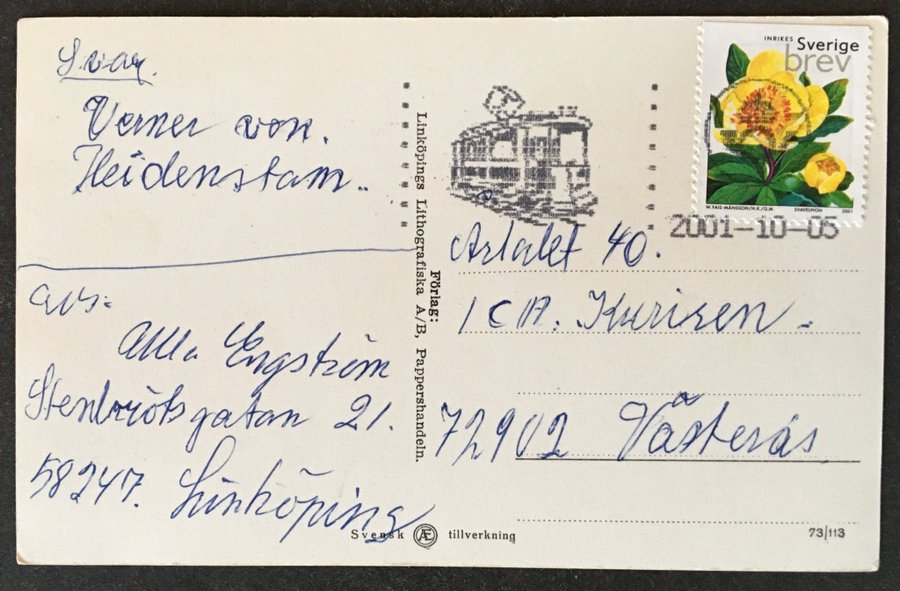 Svar.
Verner von.
Heidenstam..
avs:
Ulla Engström
Stenbrötsgatan 21.
58247. Linköping
Förlag:
Linköpings Lithografiska A/B, Pappershandeln.
INRIKES Sverige
brev
W. FAIS-MÅNSSON/H.K./G.M. SVAVELPION 2001
2001-10-05
Artalet 40.
ICA. Kurizen.
72902 Västerås
Svensk Æ tillverkning
73/113